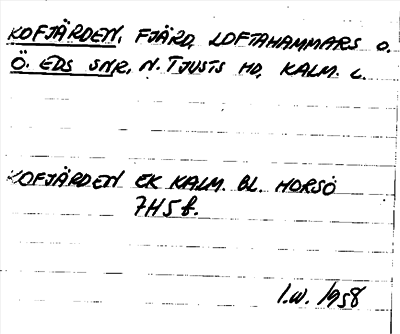 KOFJÄRDEN, FJÄRD, LOFTAHAMMARS O.
Ö. EDS SNR, N. TJUSTS HD, KALM. L.
KOFJÄRDEN EK KALM. BL. HORSÖ
7H5f.
I.W. 1958